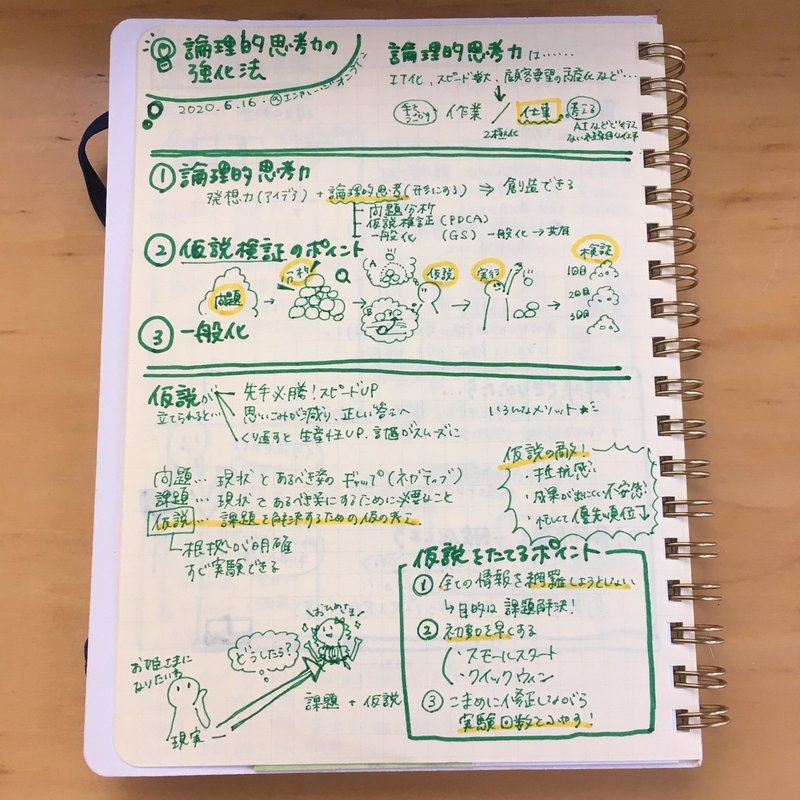 論理的思考力の
強化法
2020.6.16・@エンカレッジオンライン
論理的思考力は……
IT化、スピード増大、顧客要望の高度化など…
作業 / 仕事 考える
2極化
AIなどでは
① 論理的思考力
発想力(アイデア) + 論理的思考(形にする) ⇒ 創造できる
問題分析
仮説検証 (PDCA)
一般化 (GS) 一般化→共有
② 仮説検証のポイント
問題 → 分析 → 仮説 → 実行 → 検証
1日目
2日目
3日目
③ 一般化
仮説が
立てられると…
先手必勝!スピードUP
思いこみが減り、正しい答えへ
くり返すと生産性UP、計画がスムーズに
いろんなメリット
問題… 現状とあるべき姿のギャップ(ネガティブ)
課題… 現状とあるべき姿にするために必要なこと
仮説… 課題を解決するための仮の考え
根拠が明確
すぐ実験できる
仮説の敵!
・抵抗感
・成果が出にくい不安感
・忙しくて優先順位↓
仮説をたてるポイント
① 全ての情報を網羅しようとしない
↳目的は課題解決!
② 初動を早くする
・スモールスタート
・クイックウィン
③ こまめに修正しながら
実験回数をふやす!
お姫さまに
なりたいわ
現実
どうしたら?
おひめさま!
課題 + 仮説